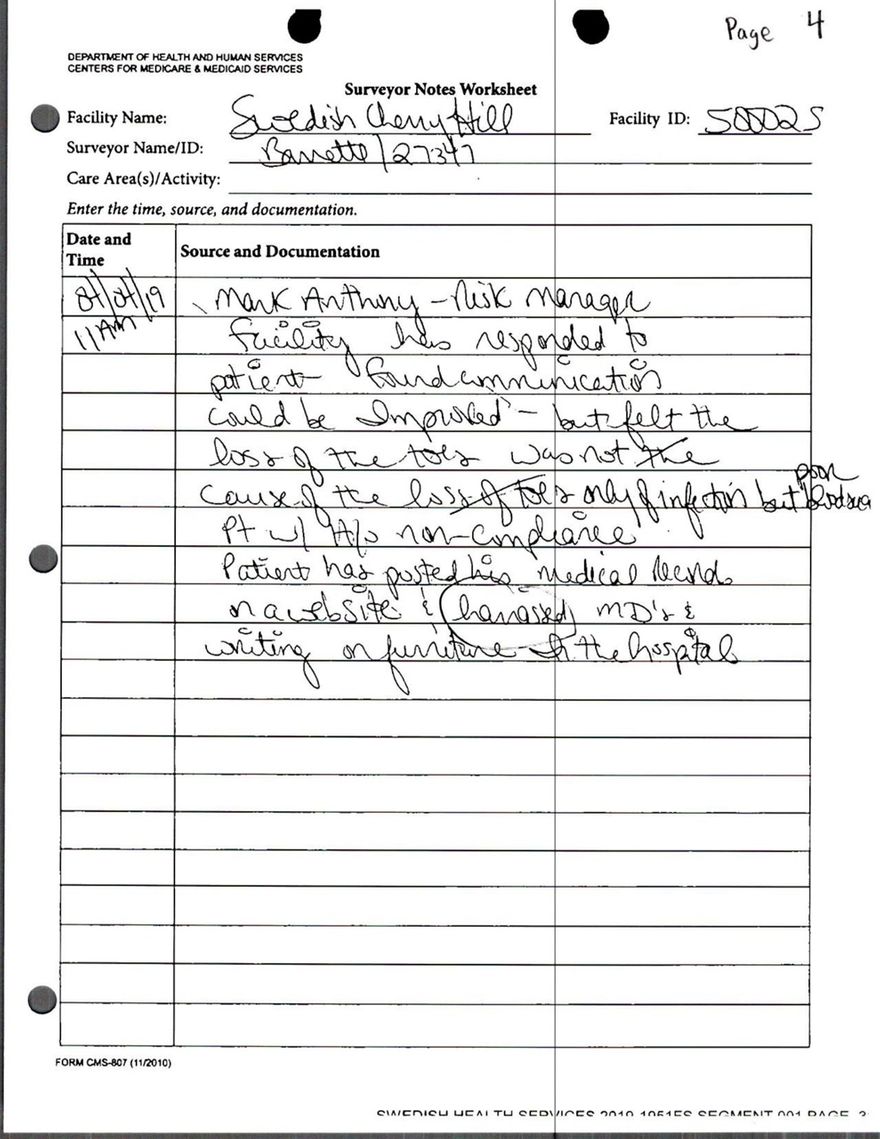 Page 4
DEPARTMENT OF HEALTH AND HUMAN SERVICES
CENTERS FOR MEDICARE & MEDICAID SERVICES
Surveyor Notes Worksheet
Facility Name: Swedish Cherry Hill Facility ID: 500025
Surveyor Name/ID: Barrette/27347
Care Area(s)/Activity:
Enter the time, source, and documentation.
Date and Time Source and Documentation
Mark Anthony - Risk Manager
11AM Facility has responded to
patient - found communication
could be Improved - but felt the
loss of the toes was not the
cause of the loss of toes only of infection but poor
Pt w/ non-compliance
Patient has posted his medical records
on a website & harrassed MD's &
writing on furniture in the hospital
FORM CMS-807 (11/2010)
SWEDISH HEALTH SERVICES 2019 1051FS SEGMENT 001 PAGE